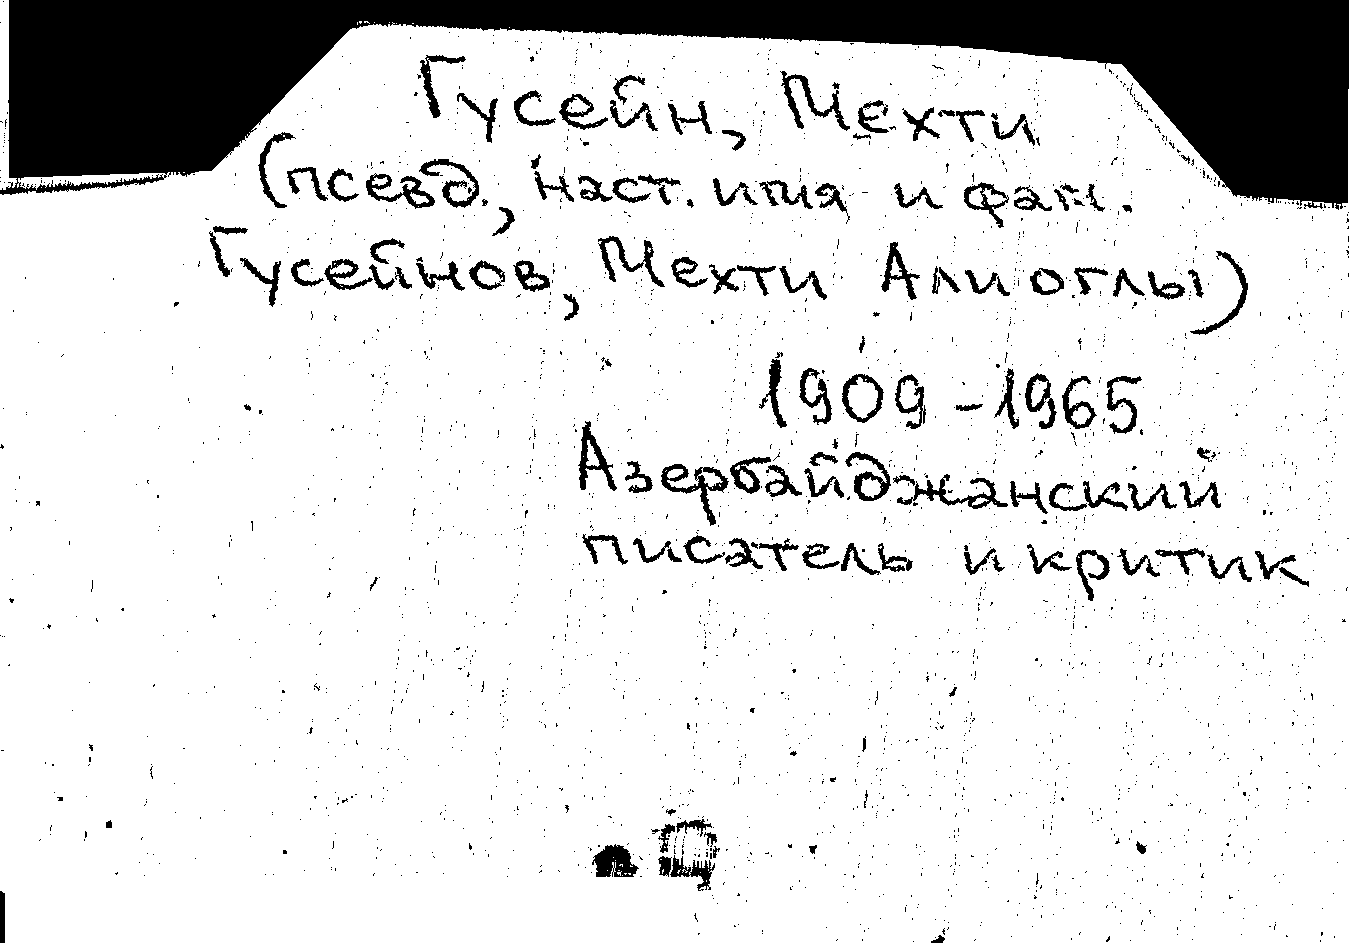 Гусейн, Мехти
(псевд., наст. имя и фам.
Гусейнов, Мехти Али оглы)
1909-1965
Азербайджанский
писатель и критик